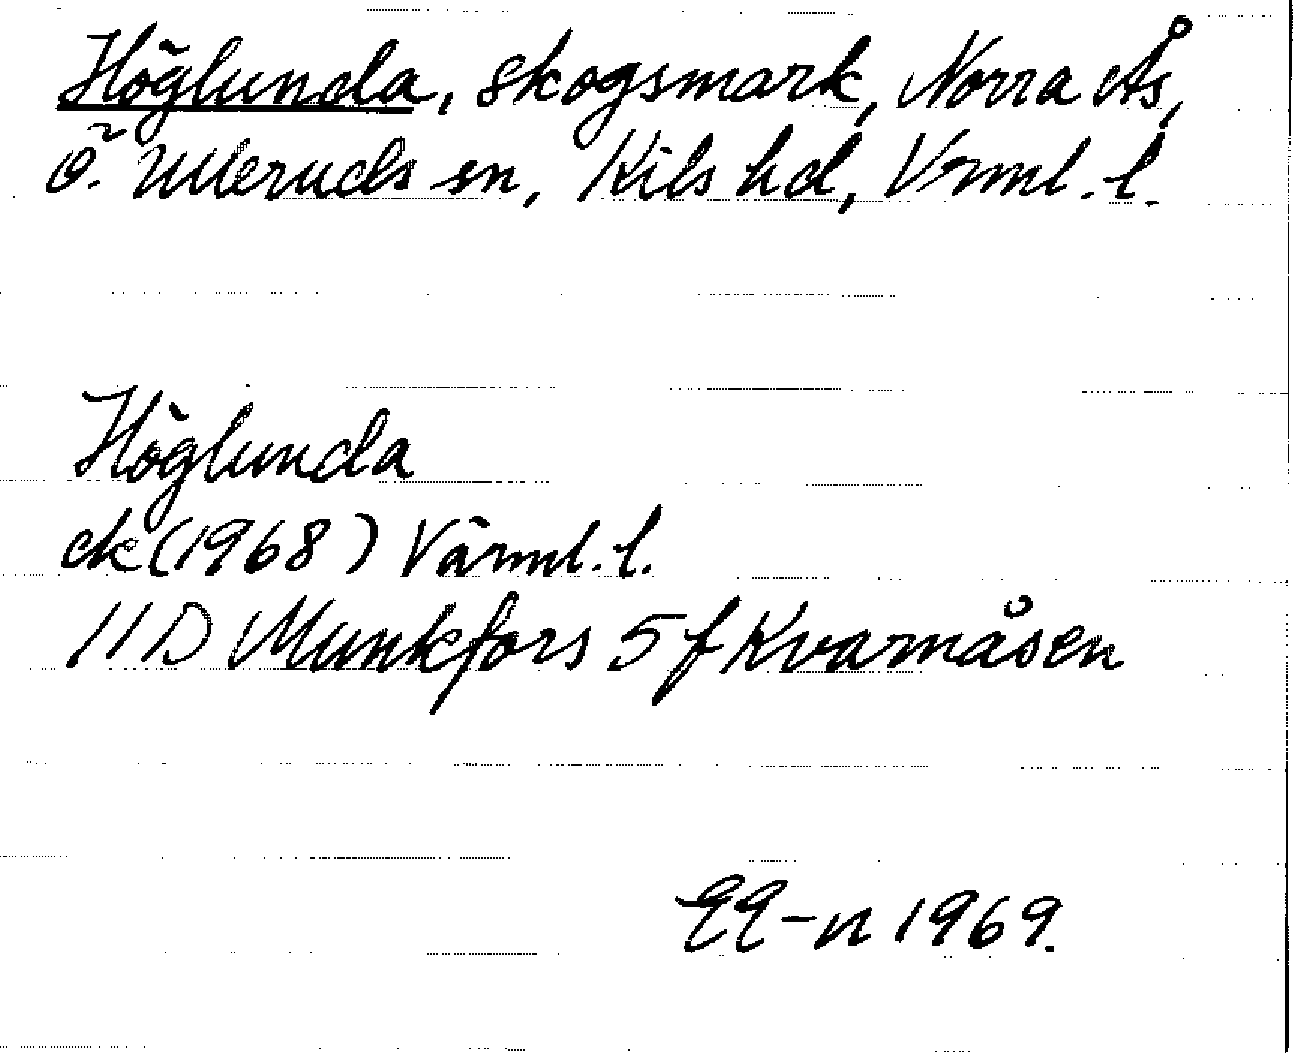 Höglunda, skogsmark, Norra Ås,
Ö. Ulleruds sn, Kils hd, Vrml. l.
Höglunda
ek (1968) Värml. l.
11D Munkfors 5f Kvarnåsen
1969.